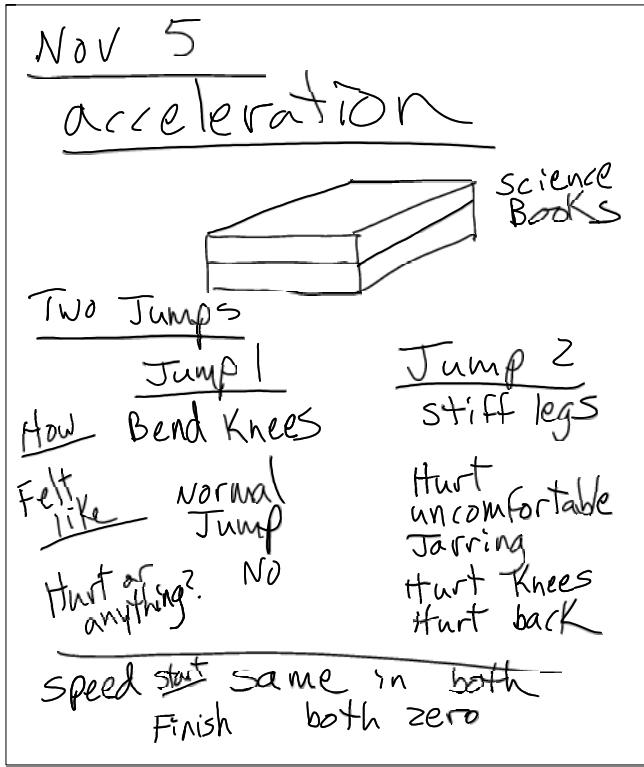 Nov 5
acceleration
science
Books
Two Jumps
Jump 1 Jump 2
How Bend Knees stiff legs
Felt like Normal Jump Hurt uncomfortable Jarring
Hurt or anything? No Hurt Knees Hurt back
speed start same in both
Finish both zero